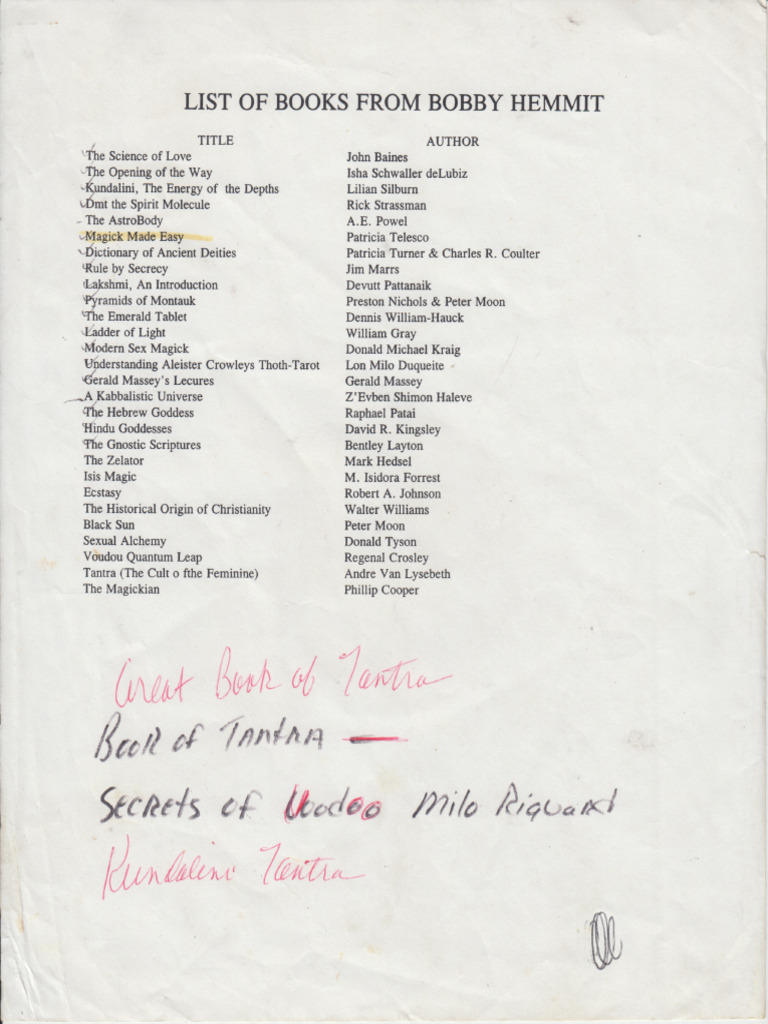 LIST OF BOOKS FROM BOBBY HEMMIT
TITLE AUTHOR
The Science of Love John Baines
The Opening of the Way Isha Schwaller deLubiz
Kundalini, The Energy of the Depths Lilian Silburn
Dmt the Spirit Molecule Rick Strassman
The AstroBody A.E. Powel
Magick Made Easy Patricia Telesco
Dictionary of Ancient Deities Patricia Turner & Charles R. Coulter
Rule by Secrecy Jim Marrs
Lakshmi, An Introduction Devutt Pattanaik
Pyramids of Montauk Preston Nichols & Peter Moon
The Emerald Tablet Dennis William-Hauck
Ladder of Light William Gray
Modern Sex Magick Donald Michael Kraig
Understanding Aleister Crowleys Thoth-Tarot Lon Milo Duqueite
Gerald Massey's Lecures Gerald Massey
A Kabbalistic Universe Z'Evben Shimon Haleve
The Hebrew Goddess Raphael Patai
Hindu Goddesses David R. Kingsley
The Gnostic Scriptures Bentley Layton
The Zelator Mark Hedsel
Isis Magic M. Isidora Forrest
Ecstasy Robert A. Johnson
The Historical Origin of Christianity Walter Williams
Black Sun Peter Moon
Sexual Alchemy Donald Tyson
Voudou Quantum Leap Regenal Crosley
Tantra (The Cult o fthe Feminine) Andre Van Lysebeth
The Magickian Phillip Cooper
Great Book of Tantra
Book of Tantra —
Secrets of Voodoo Milo Riguard
Kundalini Tantra